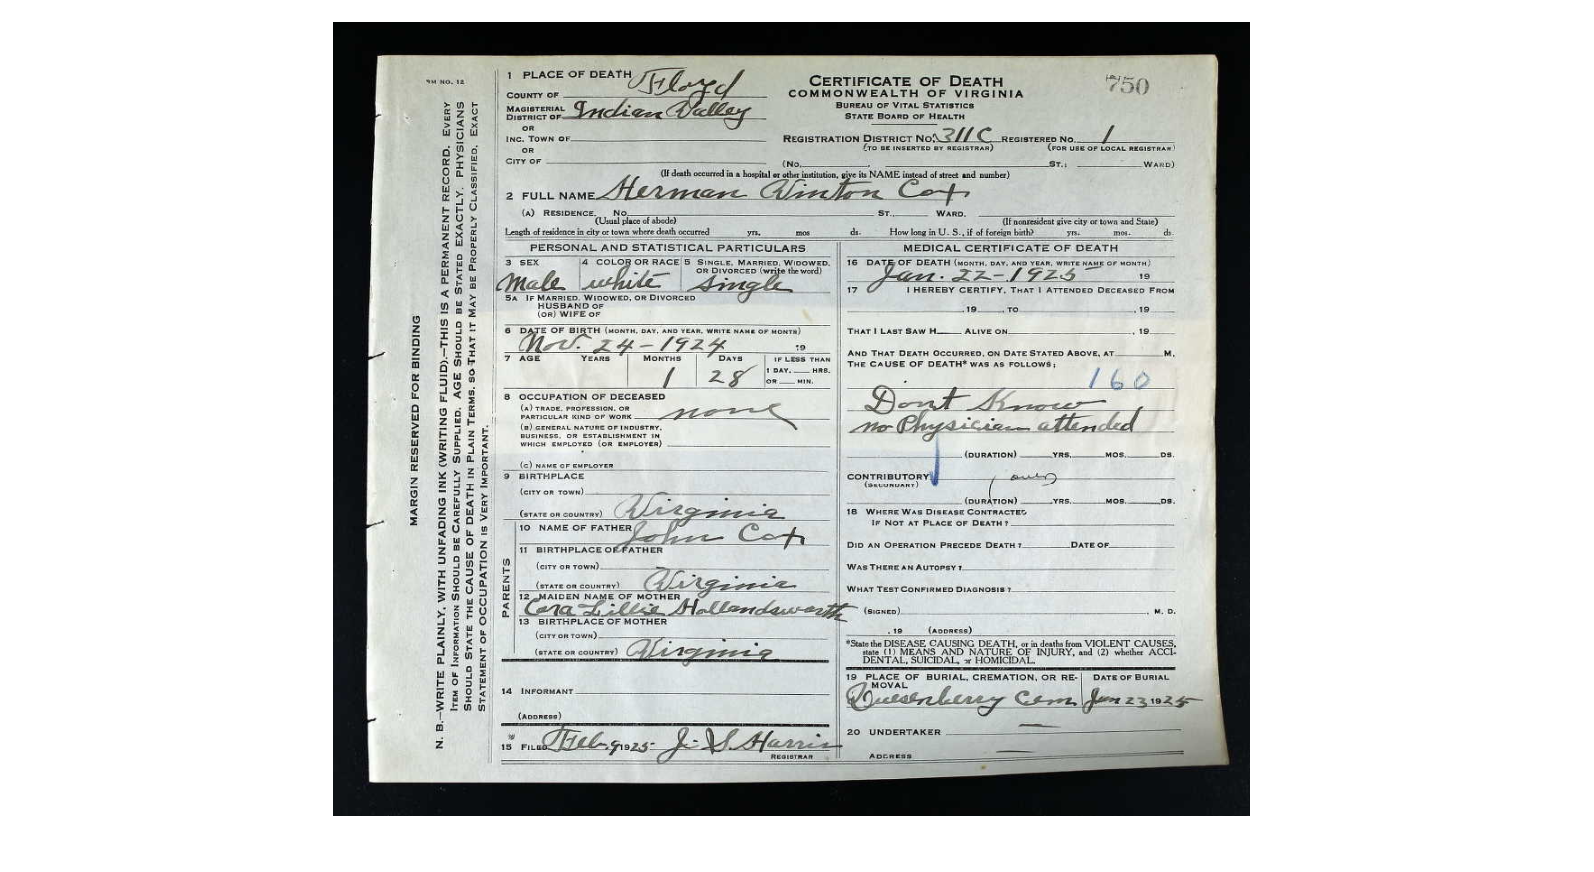 RM NO. 12
MARGIN RESERVED FOR BINDING
N. B.—WRITE PLAINLY, WITH UNFADING INK (WRITING FLUID).—THIS IS A PERMANENT RECORD. EVERY
ITEM OF INFORMATION SHOULD BE CAREFULLY SUPPLIED. AGE SHOULD BE STATED EXACTLY. PHYSICIANS
SHOULD STATE THE CAUSE OF DEATH IN PLAIN TERMS, SO THAT IT MAY BE PROPERLY CLASSIFIED. EXACT
STATEMENT OF OCCUPATION IS VERY IMPORTANT.
1 PLACE OF DEATH
COUNTY OF Floyd
MAGISTERIAL
DISTRICT OF Indian Valley
OR
INC. TOWN OF
OR
CITY OF
CERTIFICATE OF DEATH
COMMONWEALTH OF VIRGINIA
BUREAU OF VITAL STATISTICS
STATE BOARD OF HEALTH
750
REGISTRATION DISTRICT NO. 311C REGISTERED NO. 1
(TO BE INSERTED BY REGISTRAR) (FOR USE OF LOCAL REGISTRAR)
(No. , ST.; WARD)
(If death occurred in a hospital or other institution, give its NAME instead of street and number)
2 FULL NAME Herman Vinton Cox
(A) RESIDENCE. No. ST., WARD.
(Usual place of abode) (If nonresident give city or town and State)
Length of residence in city or town where death occurred yrs. mos ds. How long in U. S., if of foreign birth? yrs. mos. ds.
PERSONAL AND STATISTICAL PARTICULARS
3 SEX 4 COLOR OR RACE 5 SINGLE, MARRIED, WIDOWED,
OR DIVORCED (write the word)
Male white Single
5A IF MARRIED, WIDOWED, OR DIVORCED
HUSBAND OF
(OR) WIFE OF
6 DATE OF BIRTH (MONTH, DAY, AND YEAR, WRITE NAME OF MONTH)
Nov. 24-1924 19
7 AGE YEARS MONTHS DAYS IF LESS THAN
1 DAY, HRS.
OR MIN.
1 28
8 OCCUPATION OF DECEASED
(A) TRADE, PROFESSION, OR
PARTICULAR KIND OF WORK none
(B) GENERAL NATURE OF INDUSTRY,
BUSINESS, OR ESTABLISHMENT IN
WHICH EMPLOYED (OR EMPLOYER)
(C) NAME OF EMPLOYER
9 BIRTHPLACE
(CITY OR TOWN)
(STATE OR COUNTRY) Virginia
PARENTS
10 NAME OF FATHER John Cox
11 BIRTHPLACE OF FATHER
(CITY OR TOWN)
(STATE OR COUNTRY) Virginia
12 MAIDEN NAME OF MOTHER
Cora Lillie Hollandsworth
13 BIRTHPLACE OF MOTHER
(CITY OR TOWN)
(STATE OR COUNTRY) Virginia
14 INFORMANT
(ADDRESS)
15 FILED Feb. 9 1925- J. S. Harris
REGISTRAR
MEDICAL CERTIFICATE OF DEATH
16 DATE OF DEATH (MONTH, DAY, AND YEAR, WRITE NAME OF MONTH)
Jan. 22-1925 19
17 I HEREBY CERTIFY, THAT I ATTENDED DECEASED FROM
, 19 , TO , 19
THAT I LAST SAW H ALIVE ON , 19
AND THAT DEATH OCCURRED, ON DATE STATED ABOVE, AT M.
THE CAUSE OF DEATH* WAS AS FOLLOWS:
160
Don't Know
no Physician attended
(DURATION) YRS. MOS. DS.
CONTRIBUTORY
(SECONDARY)
(DURATION) YRS. MOS. DS.
18 WHERE WAS DISEASE CONTRACTED
IF NOT AT PLACE OF DEATH?
DID AN OPERATION PRECEDE DEATH? DATE OF
WAS THERE AN AUTOPSY?
WHAT TEST CONFIRMED DIAGNOSIS?
(SIGNED) , M. D.
, 19 (ADDRESS)
*State the DISEASE CAUSING DEATH, or in deaths from VIOLENT CAUSES,
state (1) MEANS AND NATURE OF INJURY, and (2) whether ACCI-
DENTAL, SUICIDAL, or HOMICIDAL.
19 PLACE OF BURIAL, CREMATION, OR RE-
MOVAL DATE OF BURIAL
Quesenberry Cem Jan 23 1925
20 UNDERTAKER
ADDRESS